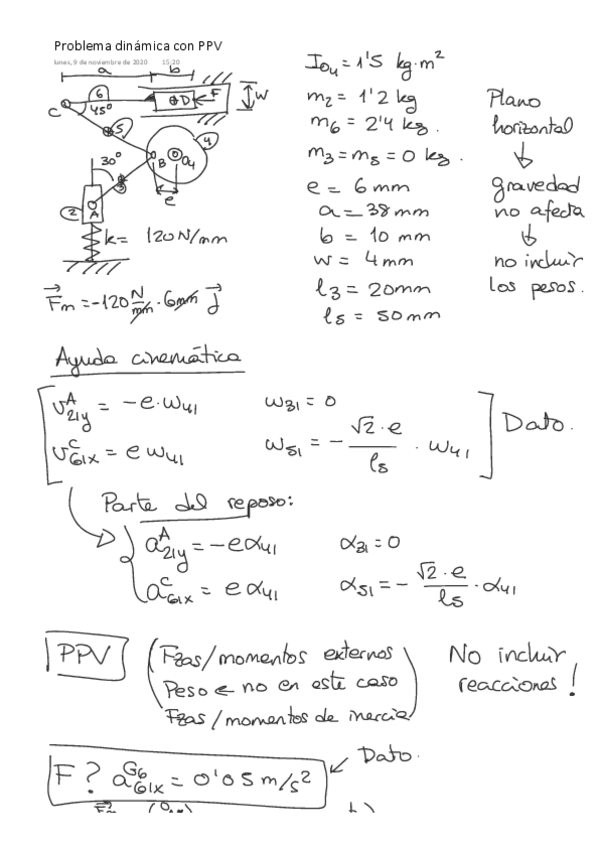 Problema dinámica con PPV
lunes, 9 de noviembre de 2020 15:20
a b
6 D F W
C 45°
5 4
30° B O4
3 e
2 A
k = 120 N/mm
F⃗m = -120 N/mm · 6mm j⃗
I_O4 = 1'5 kg·m²
m2 = 1'2 kg
m6 = 2'4 kg.
m3 = m5 = 0 kg.
e = 6 mm
a = 38 mm
b = 10 mm
w = 4 mm
l3 = 20mm
l5 = 50mm
Plano
horizontal
↓
gravedad
no afecta
↓
no incluir
los pesos.
Ayuda cinemática
v^A_21y = -e·ω41 ω31 = 0
v^C_61x = e ω41 ω51 = - √2·e / l5 · ω41 Dato.
Parte del reposo:
a^A_21y = -e α41 α31 = 0
a^C_61x = e α41 α51 = - √2·e / l5 · α41
PPV (Fzas/momentos externos
Peso ← no en este caso
Fzas/momentos de inercia)
No incluir
reacciones!
F? a^G6_61x = 0'05 m/s² ← Dato.